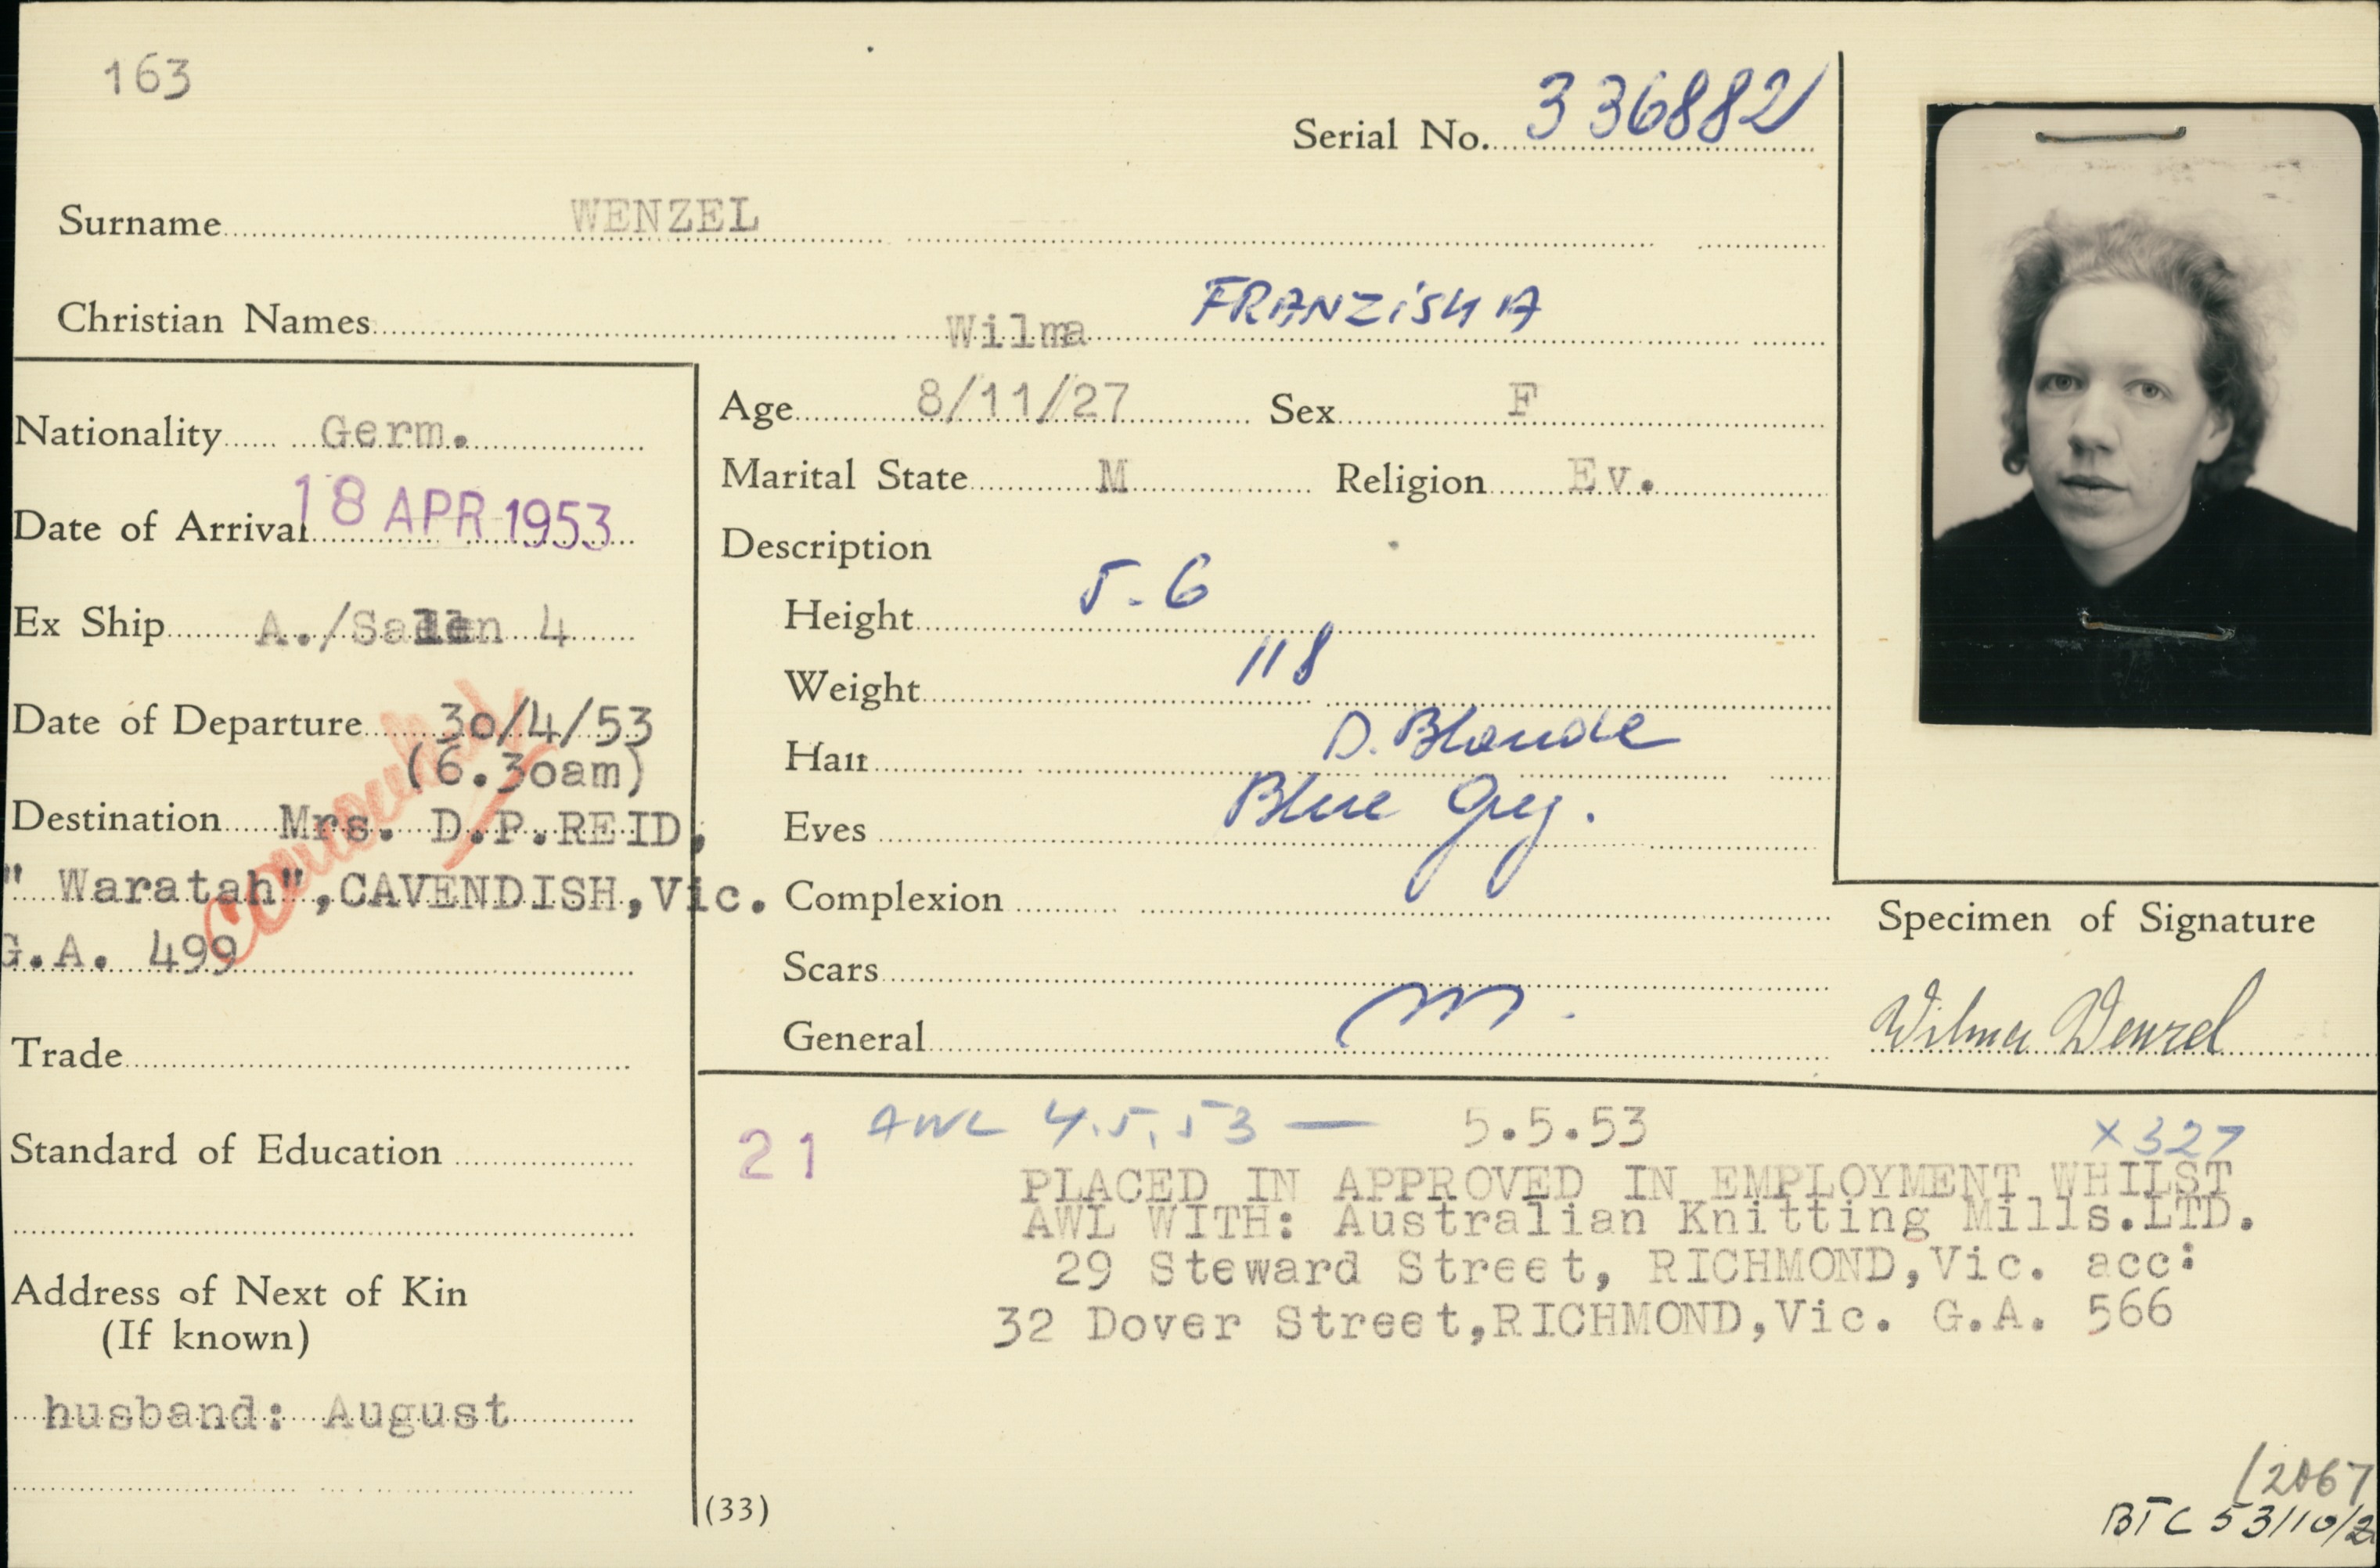 163
Serial No. 336882
Surname WENZEL
Christian Names Wilma FRANZISKA
Nationality Germ.
Date of Arrival 18 APR 1953
Ex Ship A./Sa en 4
Date of Departure 30/4/53
(6.30am)
Destination Mrs. D.P.REID,
" Waratah",CAVENDISH,Vic.
G.A. 499
Trade
Standard of Education
Address of Next of Kin
(If known)
husband: August
Age 8/11/27 Sex F
Marital State M Religion Ev.
Description
Height 5.6
Weight 118
Hair D. Blonde
Eyes Blue Grey.
Complexion
Scars
General
Specimen of Signature
Wilma Wenzel
21 AWL 4.5.53 — 5.5.53 x327
PLACED IN APPROVED IN EMPLOYMENT WHILST
AWL WITH: Australian Knitting Mills.LTD.
29 Steward Street, RICHMOND,Vic. acc:
32 Dover Street,RICHMOND,Vic. G.A. 566
(33)
BTC 53/10/2